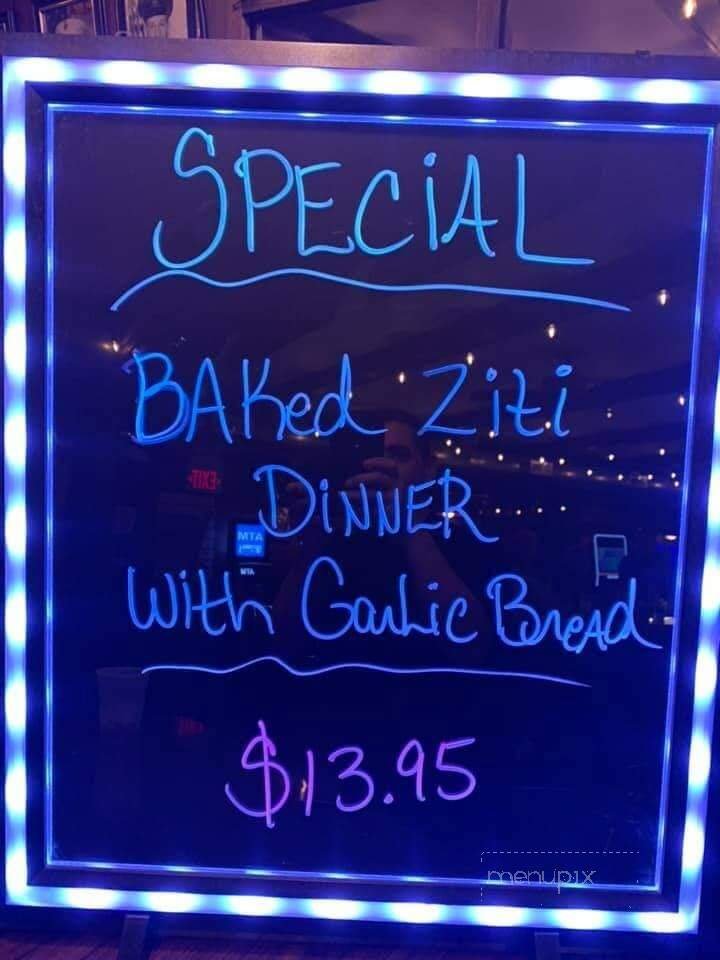 SPECIAL
BAKed Ziti
DINNER
With Garlic Bread
$13.95
EXIT
MTA
MTA
menupix